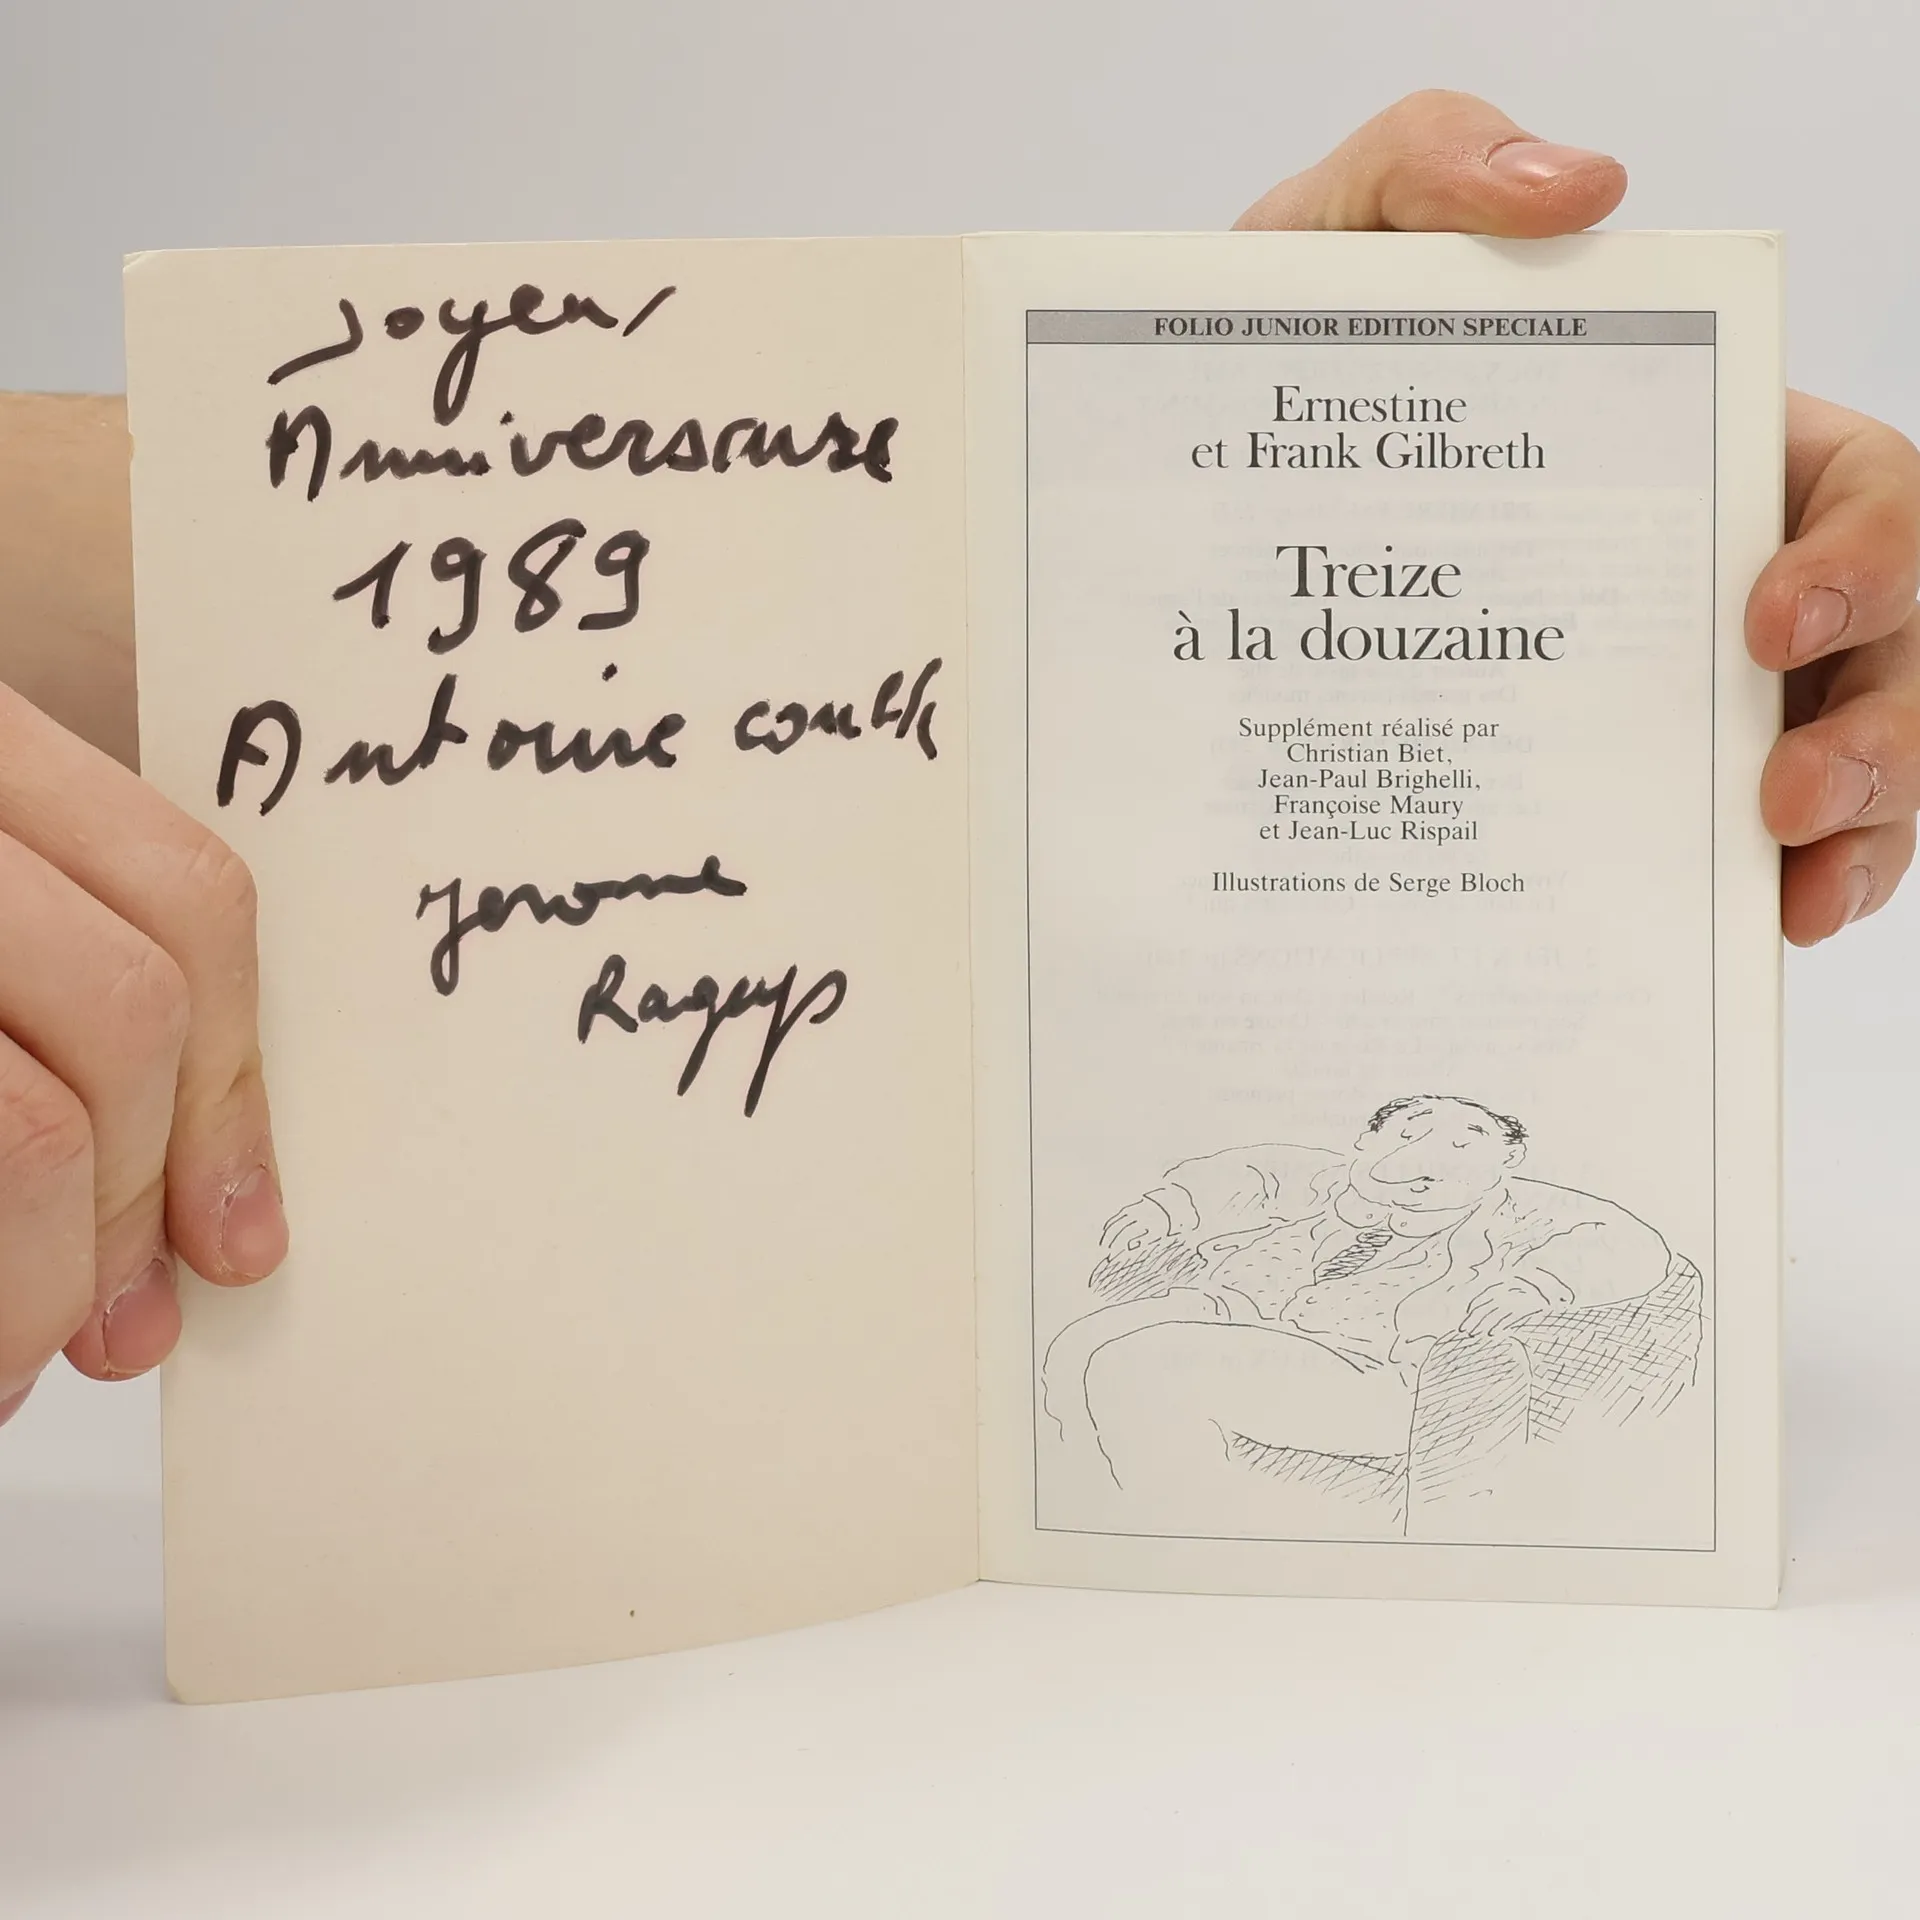 Joyeux
Anniversaire
1989
Antoine
Jerome
FOLIO JUNIOR EDITION SPECIALE
Ernestine
et Frank Gilbreth
Treize
à la douzaine
Supplément réalisé par
Christian Biet,
Jean-Paul Brighelli,
Françoise Maury
et Jean-Luc Rispail
Illustrations de Serge Bloch